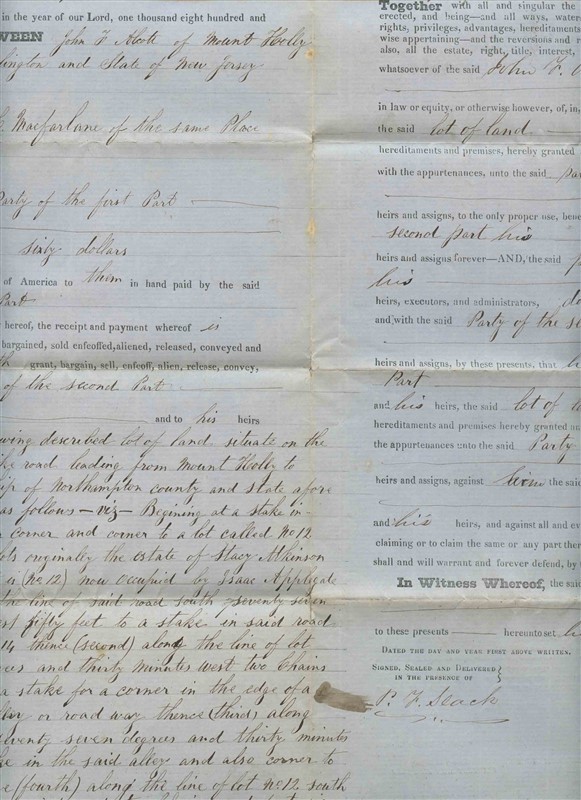 in the year of our Lord, one thousand eight hundred and
WEEN John F. Alcott of Mount Holly
lington and State of New Jersey
Macfarlane of the same Place
Party of the first Part
sixty dollars
of America to them in hand paid by the said
Part
hereof, the receipt and payment whereof is
bargained, sold enfeoffed, aliened, released, conveyed and
th grant, bargain, sell, enfeoff, alien, release, convey,
of the second Part
and to his heirs
wing described lot of land situate on the
ke road leading from Mount Holly to
ip of Northampton county and state afore
as follows - viz - Begining at a stake in
corner and corner to a lot called No 12
ots originally the estate of Stacy Atkinson
(No 12) now Occupied by Isaac Applegate
the line of said road south seventy seven
st fifty feet to a stake in said road
14 thence (second) along the line of lot
ees and thirty minutes west two Chains
a stake for a corner in the edge of a
lley or road way thence (third) along
seventy seven degrees and thirty minutes
ke in the said alley and also corner to
e (fourth) along the line of lot No 12 south
Together with all and singular the
erected, and being—and all ways, water
rights, privileges, advantages, hereditaments
wise appertaining—and the reversions and r
also, all the estate, right, title, interest,
whatsoever of the said John F. A
in law or equity, or otherwise however, of, in,
the said lot of land
hereditaments and premises, hereby granted
with the appurtenances, unto the said par
heirs and assigns, to the only proper use, bene
second part his
heirs and assigns forever—AND, the said p
his
heirs, executors, and administrators, do
and with the said Party of the se
heirs and assigns, by these presents, that h
Part
and his heirs, the said lot of l
hereditaments and premises hereby granted an
the appurtenances unto the said Party
heirs and assigns, against him the said
and his heirs, and against all and ev
claiming or to claim the same or any part ther
shall and will warrant and forever defend, by t
In Witness Whereof, the said
to these presents hereunto set hi
DATED THE DAY AND YEAR FIRST ABOVE WRITTEN.
SIGNED, SEALED AND DELIVERED
IN THE PRESENCE OF
P. F. Slack